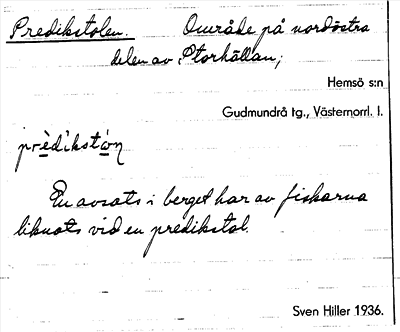 Predikstolen. Område på nordöstra
delen av Storhällan;
Hemsö s:n
Gudmundrå tg., Västernorrl. l.
En avsats i berget har av fiskarna
liknats vid en predikstol.
Sven Hiller 1936.